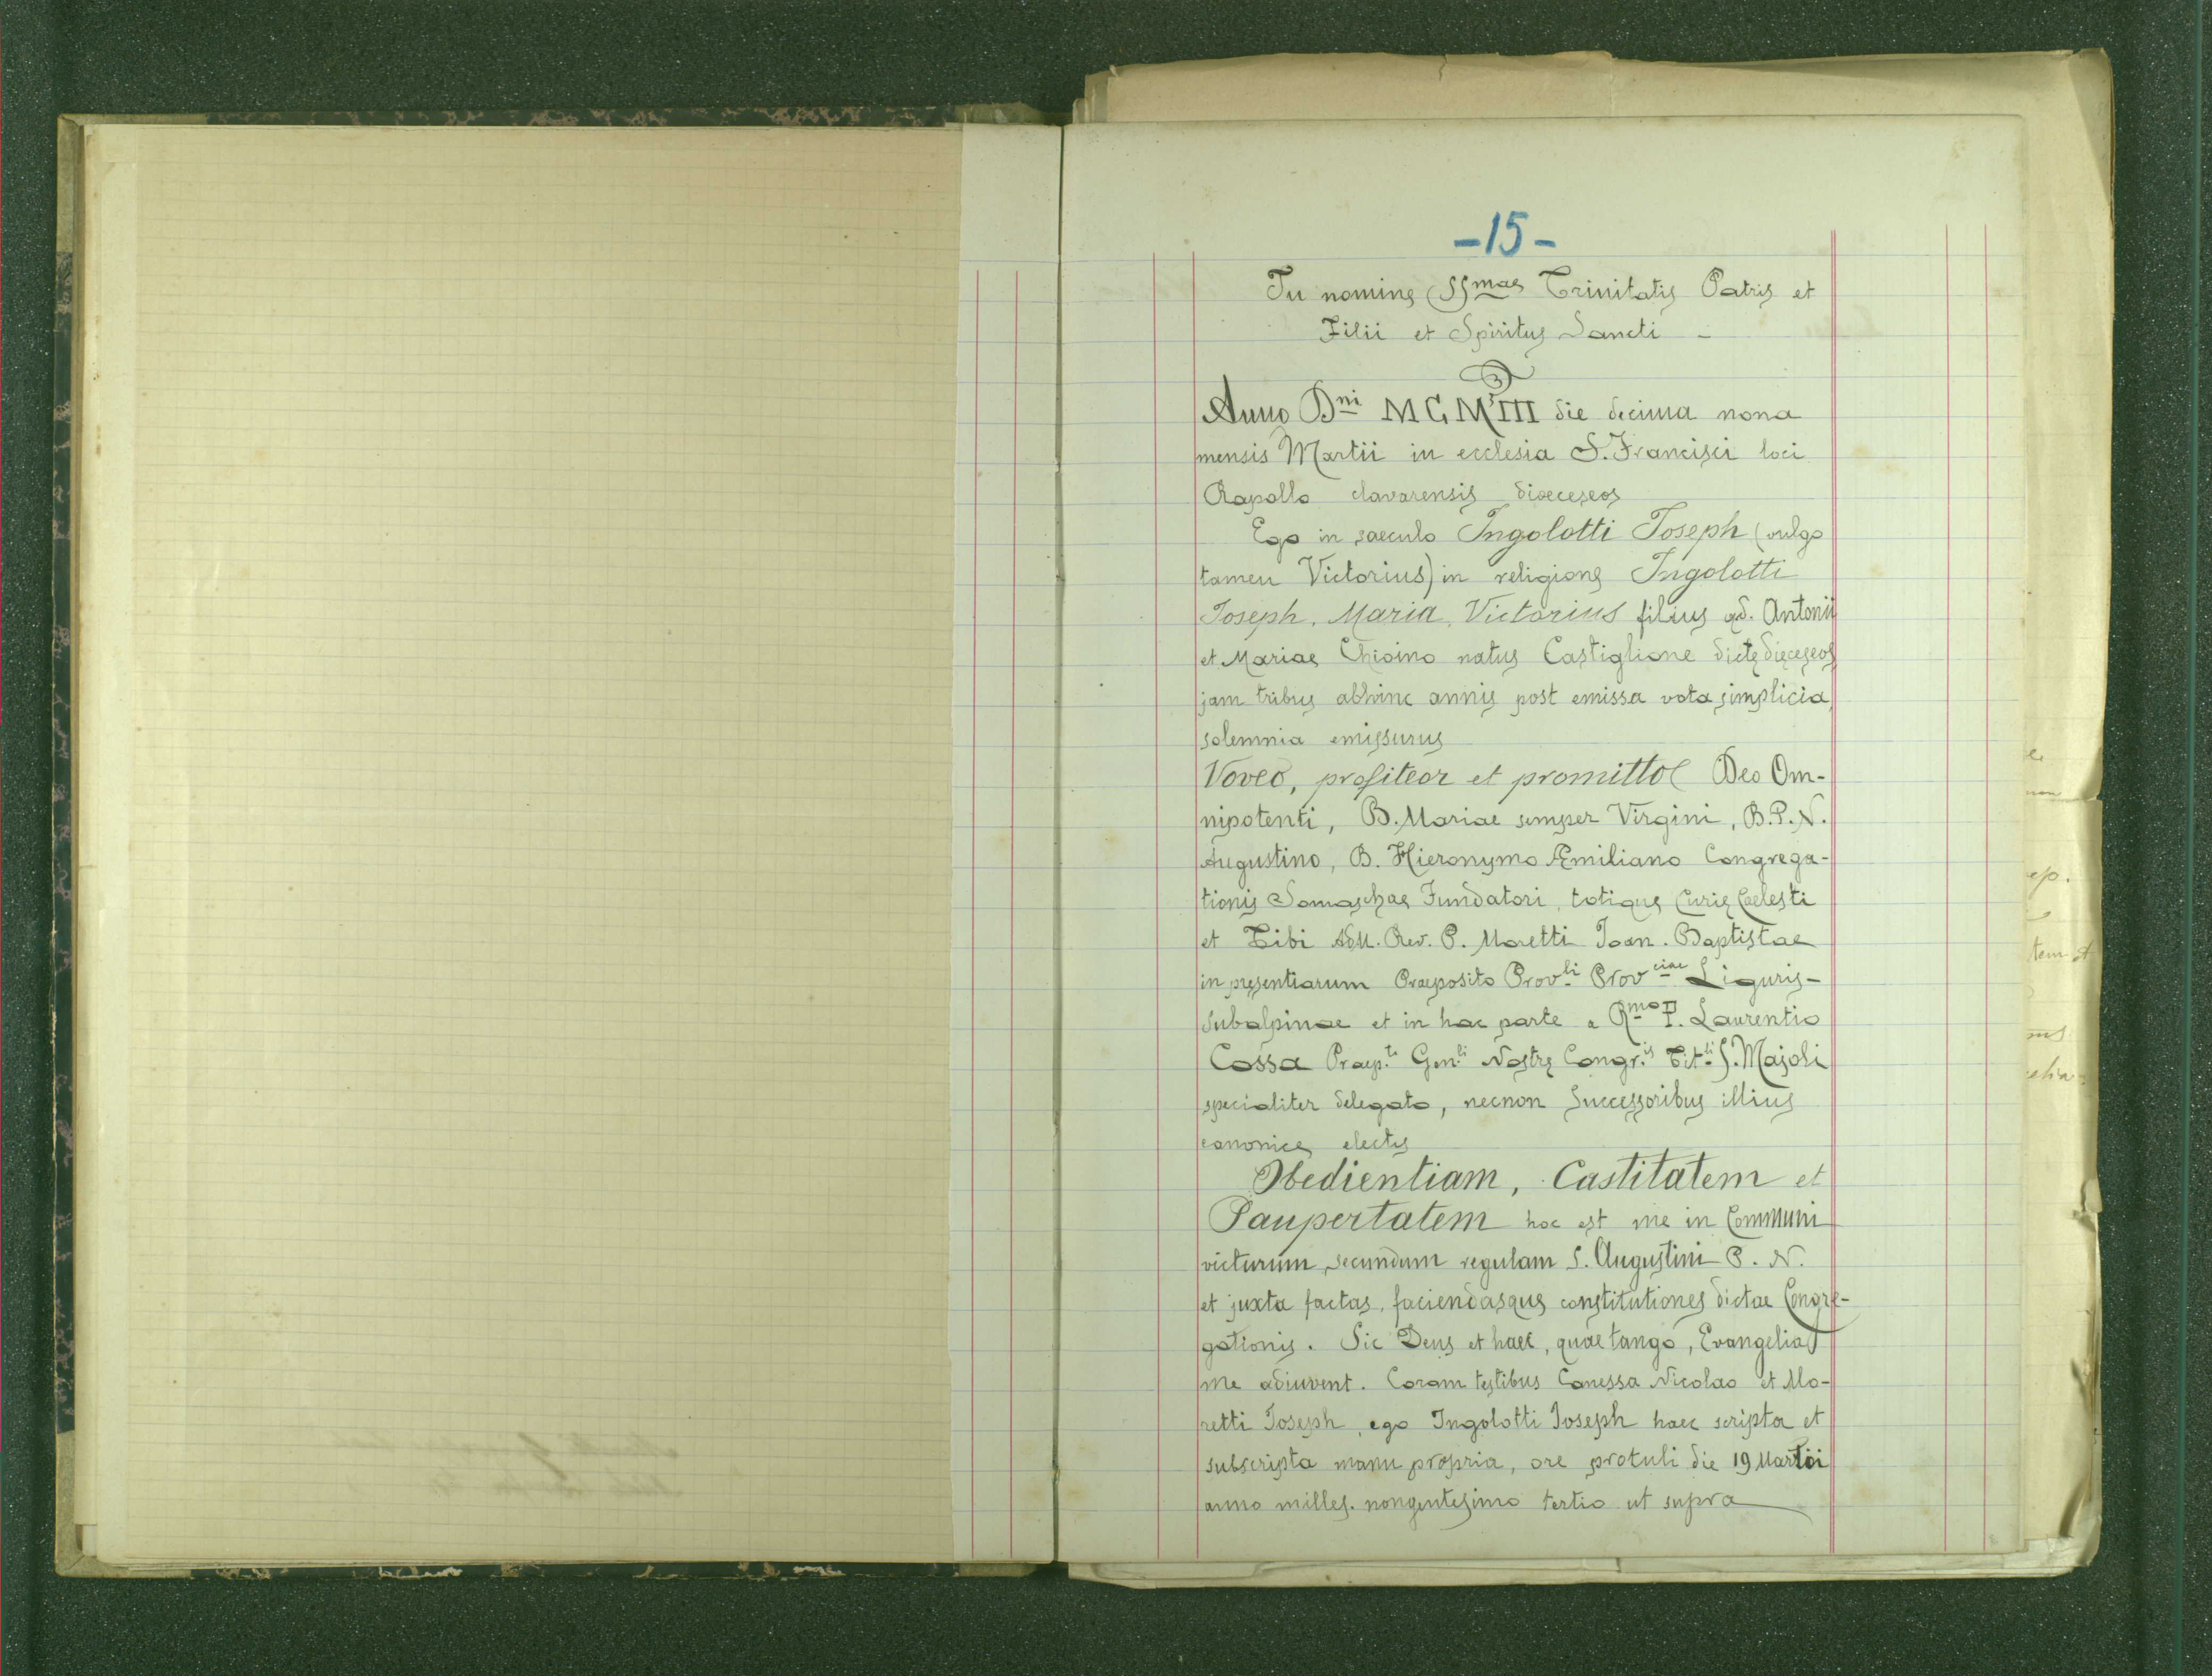 -15-
In nomine SSmae Trinitatis Patris et
Filii et Spiritus Sancti -
Anno Dni MCMIII die decima nona
mensis Martii in ecclesia S. Francisci loci
Rapallo clavarensis dioeceseos
Ego in saeculo Ingolotti Joseph (vulgo
tamen Victorius) in religione Ingolotti
Joseph, Maria, Victorius filius qd. Antonii
et Mariae Chioino natus Castiglione dictę dięceseos
jam tribus abhinc annis post emissa vota simplicia,
solemnia emissurus
Voveo, profiteor et promitto Deo Om-
nipotenti, B. Mariae semper Virgini, B. P. N.
Augustino, B. Hieronymo Æmiliano Congrega-
tionis Somaschae Fundatori, totique Curię Coelesti
et Tibi Adm. Rev. P. Moretti Joan. Baptistae
in pręsentiarum Praeposito Provli Provciae Liguris-
subalpinae et in hac parte a Rmo P. Laurentio
Cossa Praep.to Gen.li Nostrę Congr.is Tit.li S. Majoli
specialiter delegato, necnon Successoribus illius
canonice electis
Obedientiam, Castitatem et
Paupertatem hoc est me in Communi
victurum secundum regulam S. Augustini P. N.
et juxta factas, faciendasque constitutiones dictae Congre-
gationis. Sic Deus et haec, quae tango, Evangelia
me adiuvent. Coram testibus Canessa Nicolao et Mo-
retti Joseph, ego Ingolotti Joseph haec scripta et
subscripta manu propria, ore protuli die 19 Martii
anno milles. nongentesimo tertio ut supra